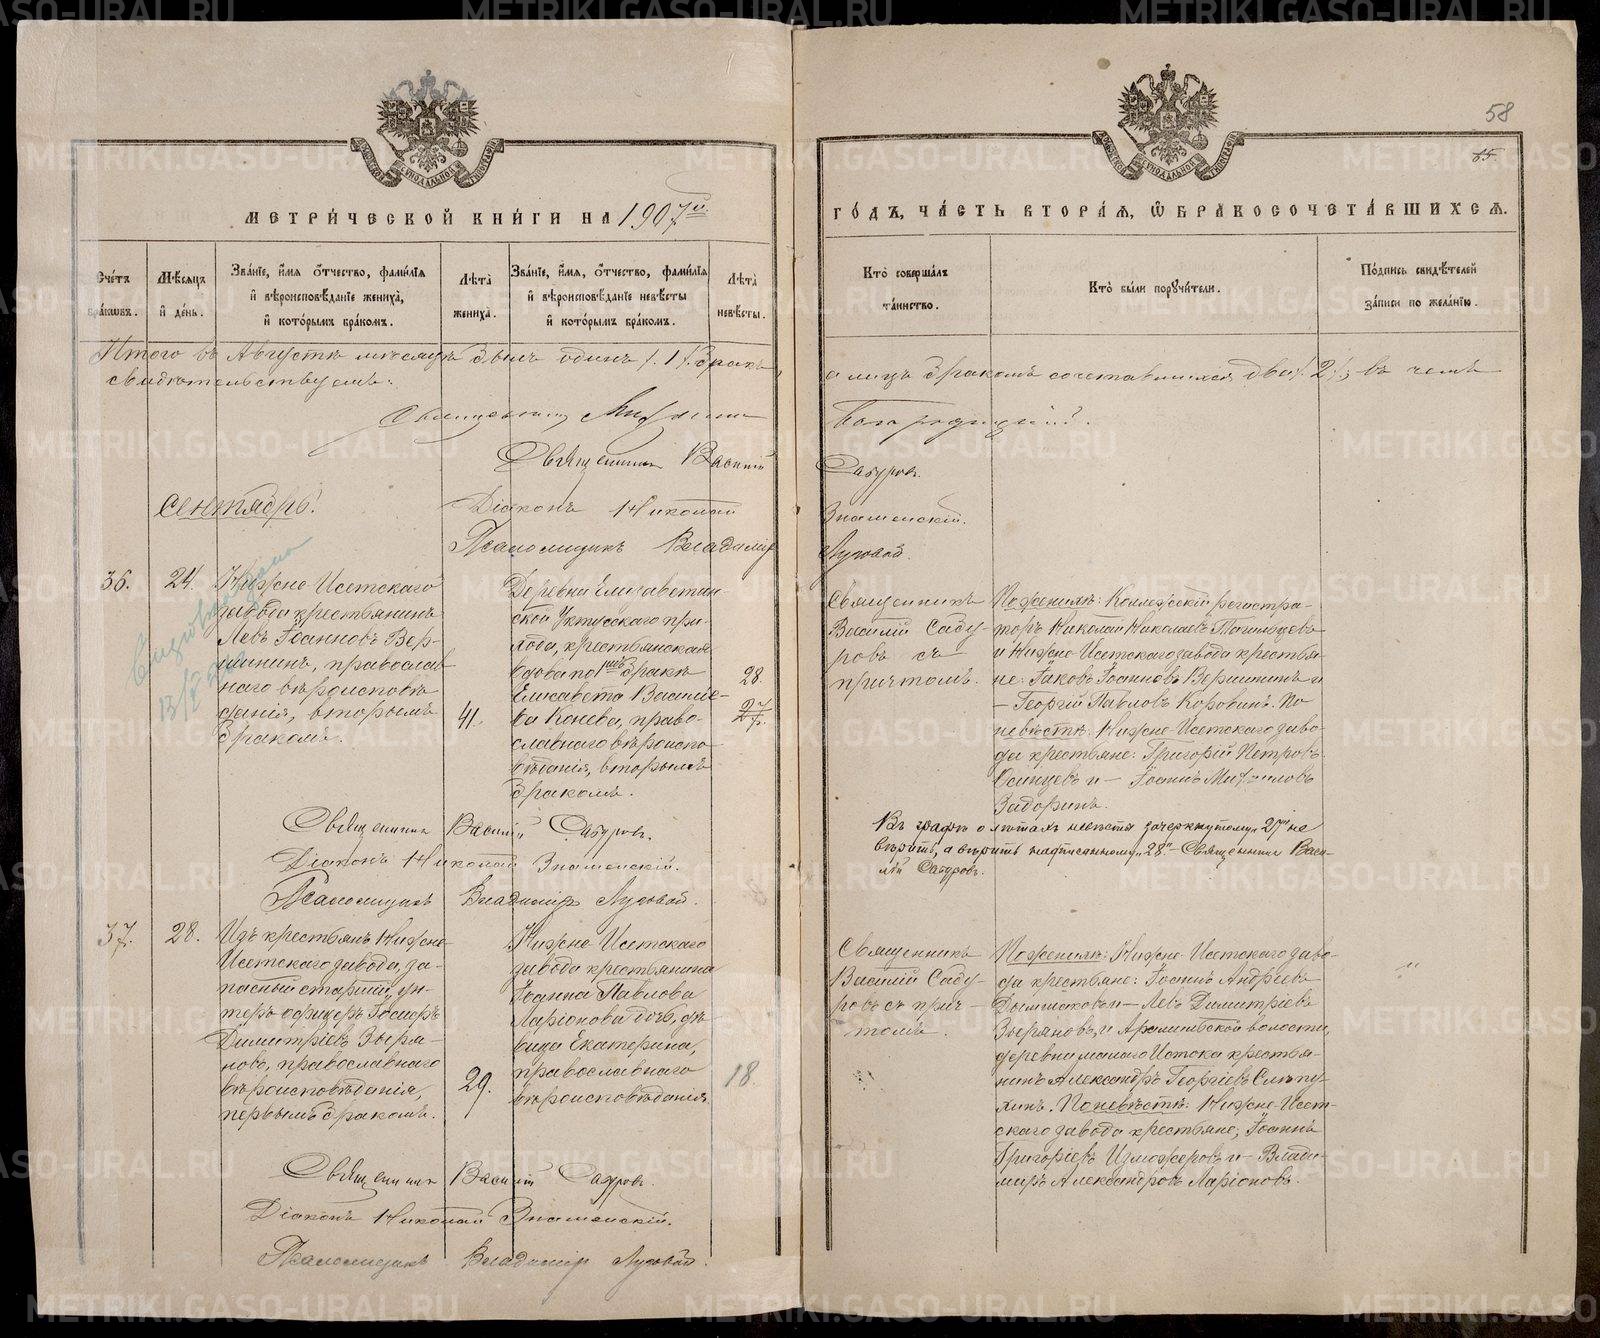 58
15.
МЕТРИЧЕСКОЙ КНИГИ НА 1907й
ГОДЪ, ЧАСТЬ ВТОРАЯ, Ѡ БРАКОСОЧЕТАВШИХСЯ.
Счетъ браковъ.
Мѣсяцъ и день.
Званіе, имя, отчество, фамилія и вѣроисповѣданіе жениха, и которымъ бракомъ.
Лѣта жениха.
Званіе, имя, отчество, фамилія и вѣроисповѣданіе невѣсты и которымъ бракомъ.
Лѣта невѣсты.
Кто совершалъ таинство.
Кто были поручители.
Подпись свидѣтелей записи по желанію.
Итого въ Августѣ мѣсяцѣ былъ одинъ /. 1 /. бракъ,
а лицъ бракомъ сочетавшихся два /. 2 /.; въ чемъ
свидѣтельствуемъ:
Богородицкій.
Священникъ Василій
Сабуровъ.
Діаконъ Николай
Знаменскій.
Псаломщикъ Владимір
Луговой.
Сентябрь!
36.
24.
Нижне-Исетскаго
завода крестьянинъ
Левъ Іоанновъ Вер-
шининъ, православ-
наго вѣроисповѣ-
данія, вторымъ
бракомъ.
41.
Деревни Елизаветин-
ской Уктусскаго при-
хода, крестьянская
вдова по 1мъ бракѣ
Елисавета Василье-
ва Конева, право-
славнаго вѣроиспо-
вѣданія, вторымъ
бракомъ.
28.
27.
Священникъ
Василій Сабу-
ровъ съ
причтомъ.
По женихѣ: Коллежскій регистра-
торъ Николай Николаевъ
и Нижне-Исетскаго завода крестья-
не: Іаковъ Іоанновъ Вершининъ и
— Георгій Павловъ Коровинъ. По
невѣстѣ: Нижне-Исетскаго заво-
да крестьяне: Григорій Петровъ
Осинцевъ и — Іоаннъ Михаиловъ
Задоринъ.
Священникъ Василій Сабуровъ.
Діаконъ Николай Знаменскій.
Псаломщикъ Владиміръ Луговой.
Въ графѣ о лѣтахъ невѣсты зачеркнутому „27" не
вѣрить, а вѣрить надписанному „28" – Священникъ Васи-
лій Сабуровъ.
37.
28.
Изъ крестьянъ Нижне-
Исетскаго завода, за-
пасный старшій ун-
теръ офицеръ
Димитріевъ Зыря-
новъ, православнаго
вѣроисповѣданія,
первымъ бракомъ.
29.
Нижне-Исетскаго
завода крестьянина
Іоанна Павлова
Ларіонова дочь, дѣ-
вица Екатерина,
православнаго
вѣроисповѣданія.
18.
Священникъ
Василій Сабу-
ровъ съ прич-
томъ.
По женихѣ: Нижне-Исетскаго заво-
да крестьяне: Іоаннъ Андреевъ
Дымшаковъ и — Левъ Димитріевъ
Зыряновъ, и Арамильской волости,
деревни малаго Истока крестья-
нинъ Александръ Георгіевъ Слѣпу-
хинъ. По невѣстѣ: Нижне-Исет-
скаго завода крестьяне; Іоаннъ
Григоріевъ Изможеровъ и — Влади-
миръ Александровъ Ларіоновъ.
Священникъ Василій Сабуровъ.
Діаконъ Николай Знаменскій.
Псаломщикъ Владиміръ Луговой.
METRIKI.GASO-URAL.RU